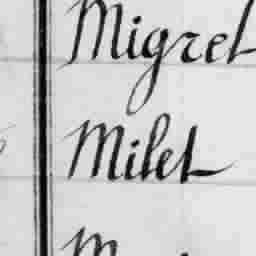 Migret
Milet